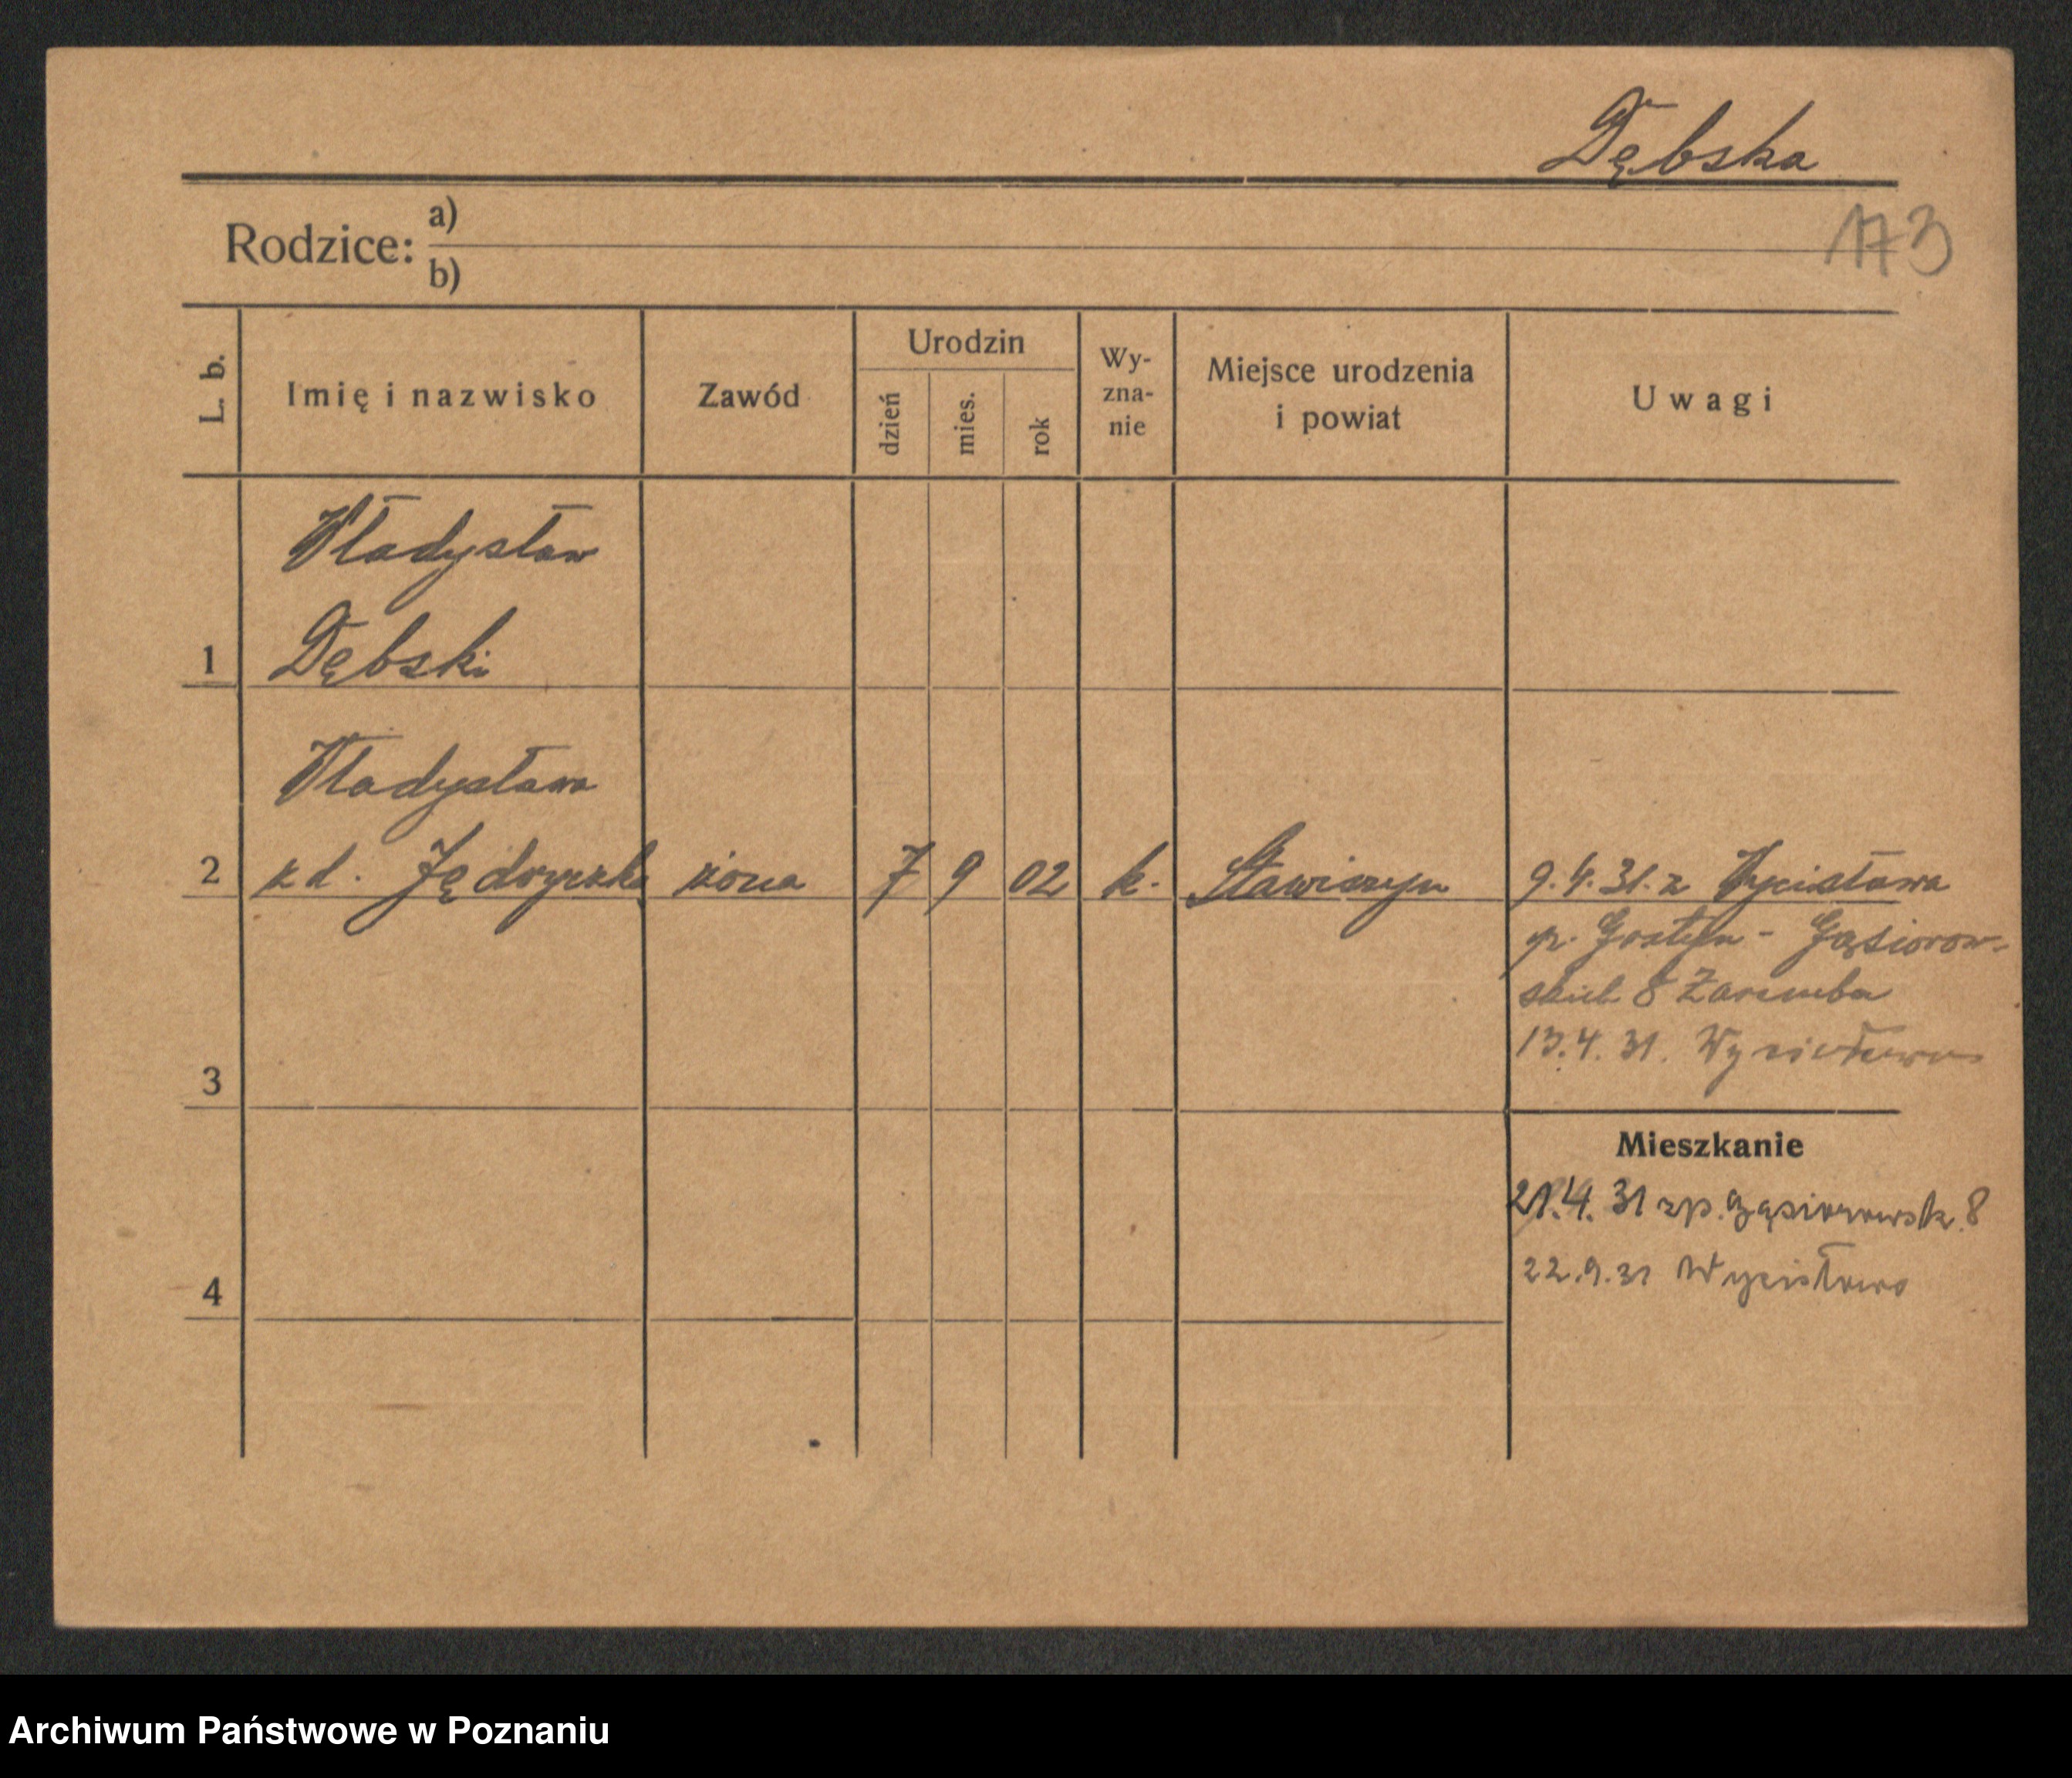 Dębska
173
Rodzice: a)
b)
L. b.
Imię i nazwisko
Zawód
Urodzin
dzień
mies.
rok
Wy-
zna-
nie
Miejsce urodzenia
i powiat
Uwagi
Władysław
1 Dębski
Władysława
2 z d. Jędryczka żona 7 9 02 k. Stawiszyn 9.4.31. z Wycisłowa
p. Gostyn - Gąsiorow-
skich 8 Zaremba
13.4.31. Wycisłowo
3
Mieszkanie
21.4.31 zp. Gąsiorowsk. 8
22.9.31 Wycisłowo
4
Archiwum Państwowe w Poznaniu